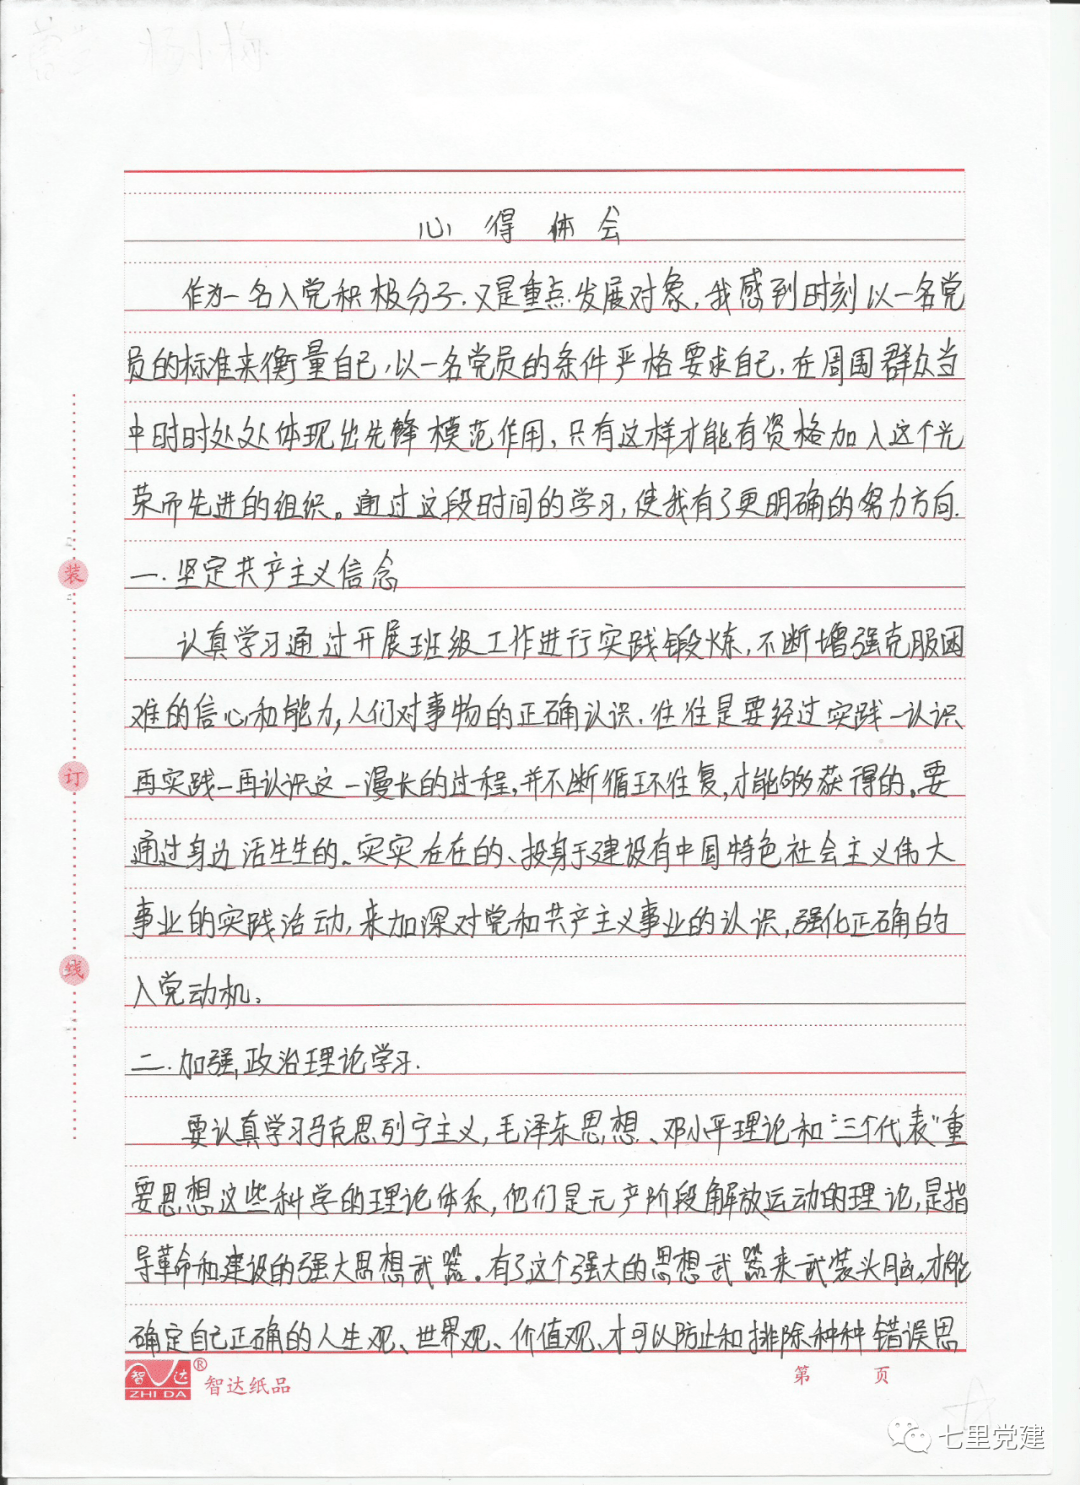 心得体会
作为一名入党积极分子.又是重点发展对象,我感到时刻以一名党
员的标准来衡量自己,以一名党员的条件严格要求自己,在周围群众当
中时时处处体现出先锋模范作用,只有这样才能有资格加入这个光
荣而先进的组织。通过这段时间的学习,使我有了更明确的努力方向.
一.坚定共产主义信念
认真学习通过开展班级工作进行实践锻炼,不断增强克服困
难的信心和能力,人们对事物的正确认识.往往是要经过实践—认识
再实践—再认识这一漫长的过程,并不断循环往复,才能够获得的。要
通过身边活生生的、实实在在的、投身于建设有中国特色社会主义伟大
事业的实践活动,来加深对党和共产主义事业的认识,强化正确的
入党动机。
二.加强,政治理论学习.
要认真学习马克思列宁主义,毛泽东思想、邓小平理论和"三个代表"重
要思想这些科学的理论体系,他们是无产阶段解放运动的理论,是指
导革命和建设的强大思想武器。有了这个强大的思想武器来武装头脑,才能
确定自己正确的人生观、世界观、价值观、才可以防止和排除种种错误思
装
订
线
智达
ZHI DA
®
智达纸品
第 页
七里党建